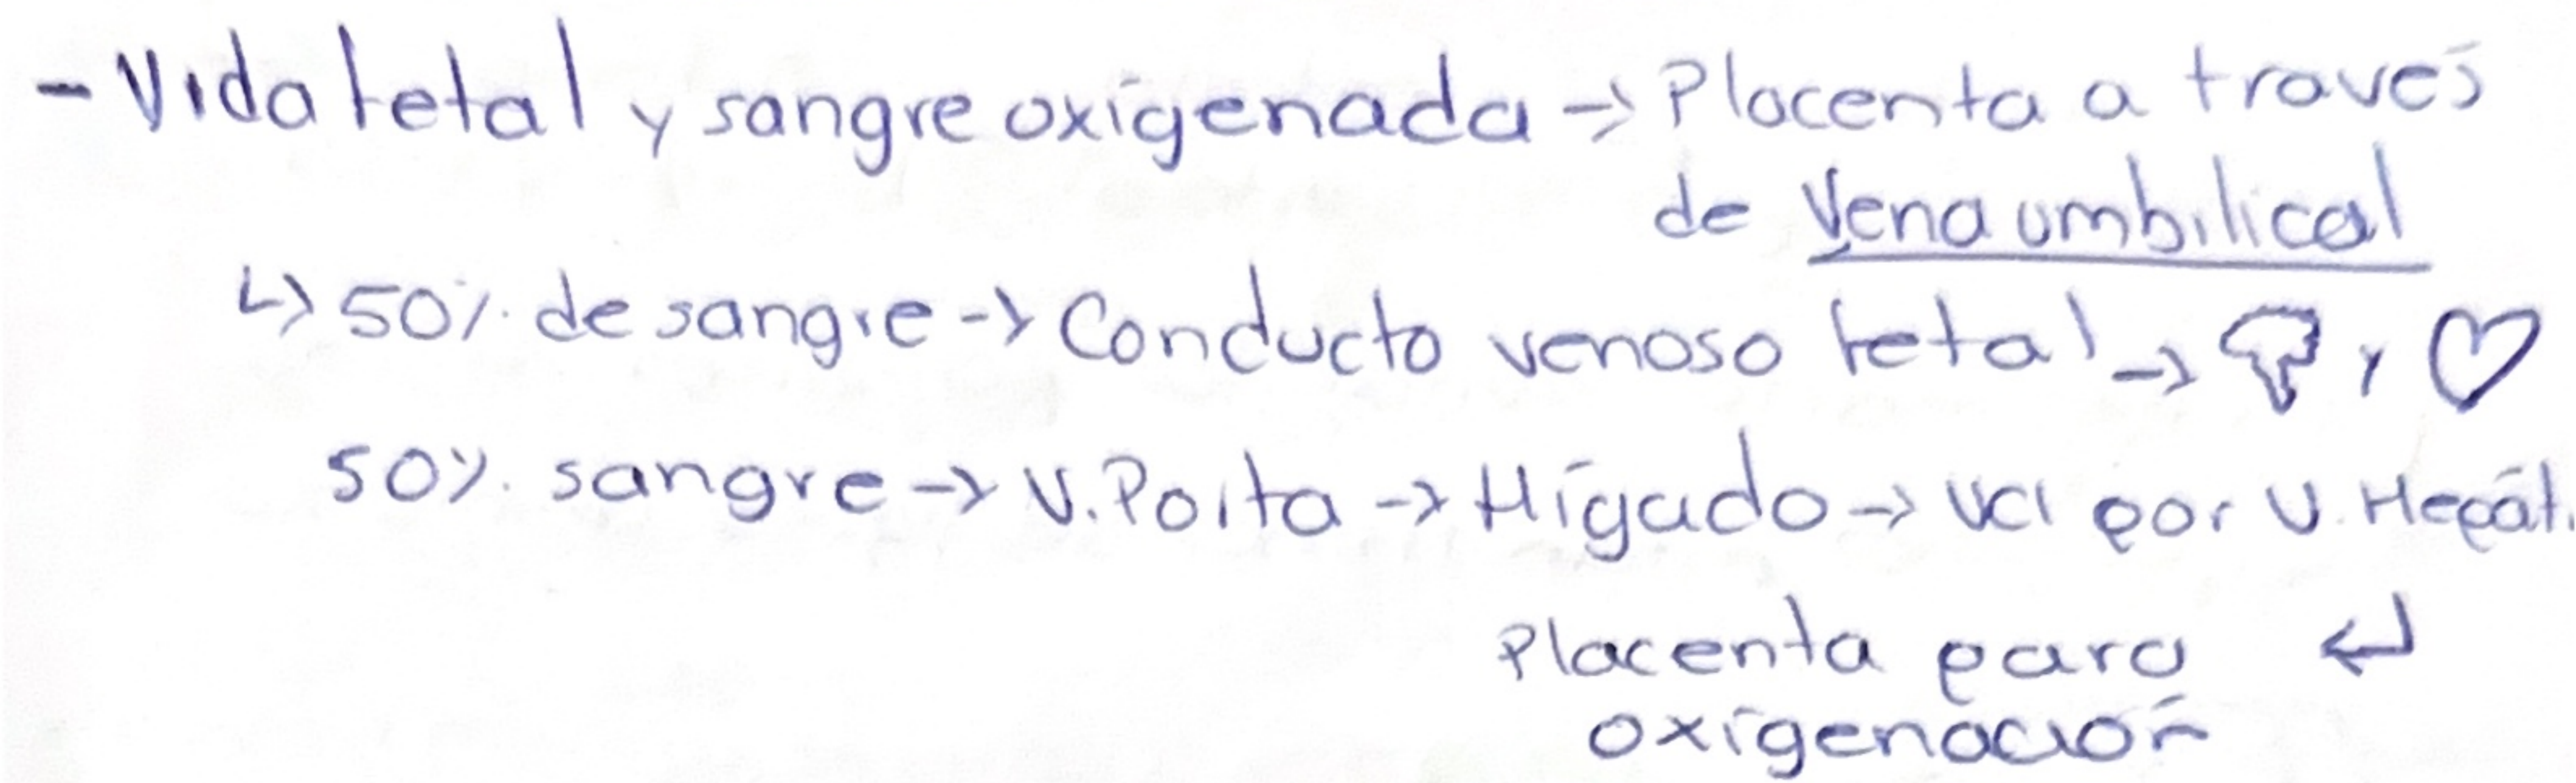 - Vida fetal y sangre oxigenada → Placenta a través
de Vena umbilical
↳ 50% de sangre → Conducto venoso fetal → y
50% sangre → V. Porta → Hígado → VCI por V. Hepát.
Placenta para ↵
oxigenación